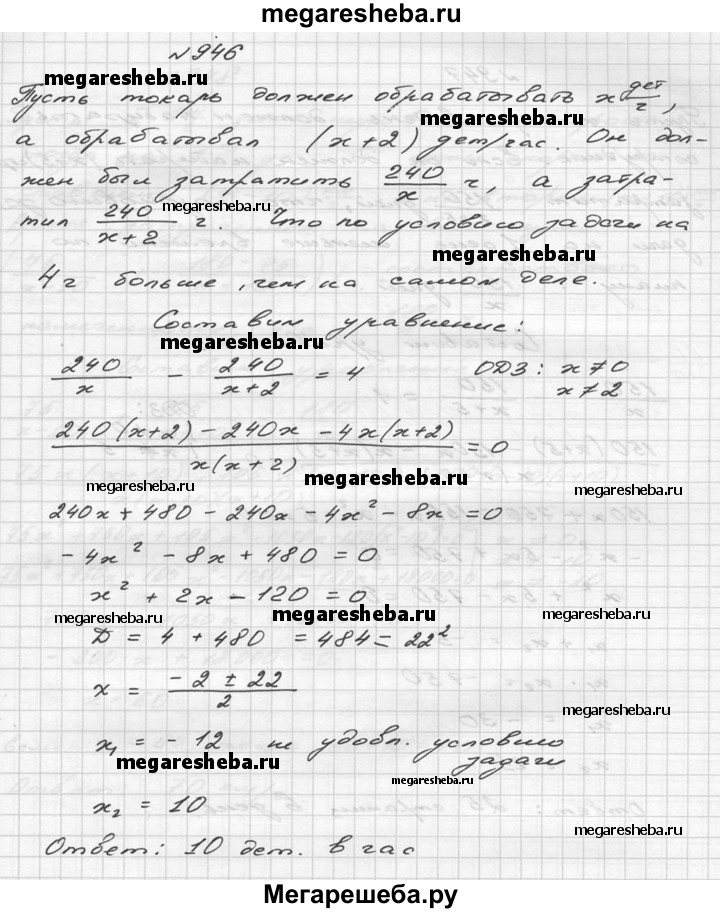 megaresheba.ru
№946
megaresheba.ru
Пусть токарь должен обрабатывать x дет/г,
megaresheba.ru
а обрабатывал (x+2) дет/час. Он дол-
жен был затратить 240/x г, а затра-
megaresheba.ru
тил 240/x+2 г. Что по условию задачи на
megaresheba.ru
4 г больше, чем на самом деле.
Составим уравнение:
megaresheba.ru
240/x - 240/x+2 = 4 ОДЗ: x≠0
x≠2
240(x+2) - 240x - 4x(x+2) / x(x+2) = 0
megaresheba.ru
megaresheba.ru
megaresheba.ru
240x + 480 - 240x - 4x² - 8x = 0
- 4x² - 8x + 480 = 0
x² + 2x - 120 = 0
megaresheba.ru
megaresheba.ru
megaresheba.ru
D = 4 + 480 = 484 = 22²
x = -2 ± 22 / 2
megaresheba.ru
x₁ = - 12 не удовл. условию
задачи
megaresheba.ru
megaresheba.ru
x₂ = 10
megaresheba.ru
Ответ: 10 дет. в час
Мегарешеба.ру